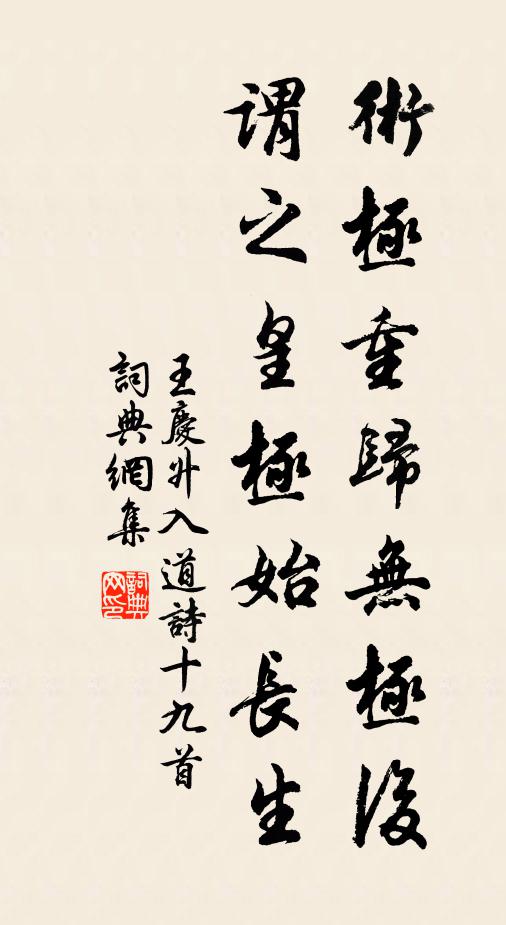 術極重歸無極後
謂之皇極始長生
王慶升入道詩十九首
詞典網集
詞典網印